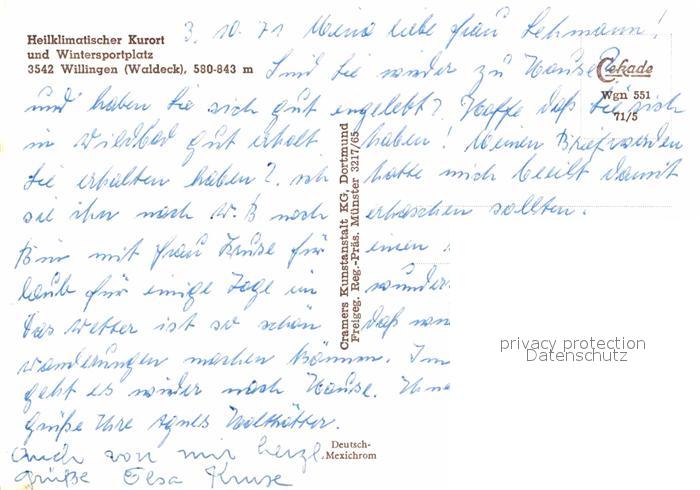 Heilklimatischer Kurort
und Wintersportplatz
3542 Willingen (Waldeck), 580-843 m
3. 10. 71 Meine liebe Frau Lehmann!
Sind Sie wieder zu Hause
und haben Sie sich gut eingelebt? Hoffe daß Sie sich
in Wiesbad gut erholt haben! Meinen Brief werden
Sie erhalten haben? ich hatte mich beeilt damit
sie ihn noch W. B noch erhaschen sollten.
Bin mit Frau Kruse für einen
laub für einige Tage in wunder
Das Wetter ist so schön daß wir
wanderungen machen können. Im
geht es wieder nach Hause. Ihne
Grüße Ihre Agnes
Auch von mir herzl.
Grüße Elsa Kruse
Cekade
Wgn 551
71/5
Cramers Kunstanstalt KG, Dortmund
Freigeg. Reg.-Präs. Münster 3217/65
Deutsch-
Mexichrom
privacy protection
Datenschutz